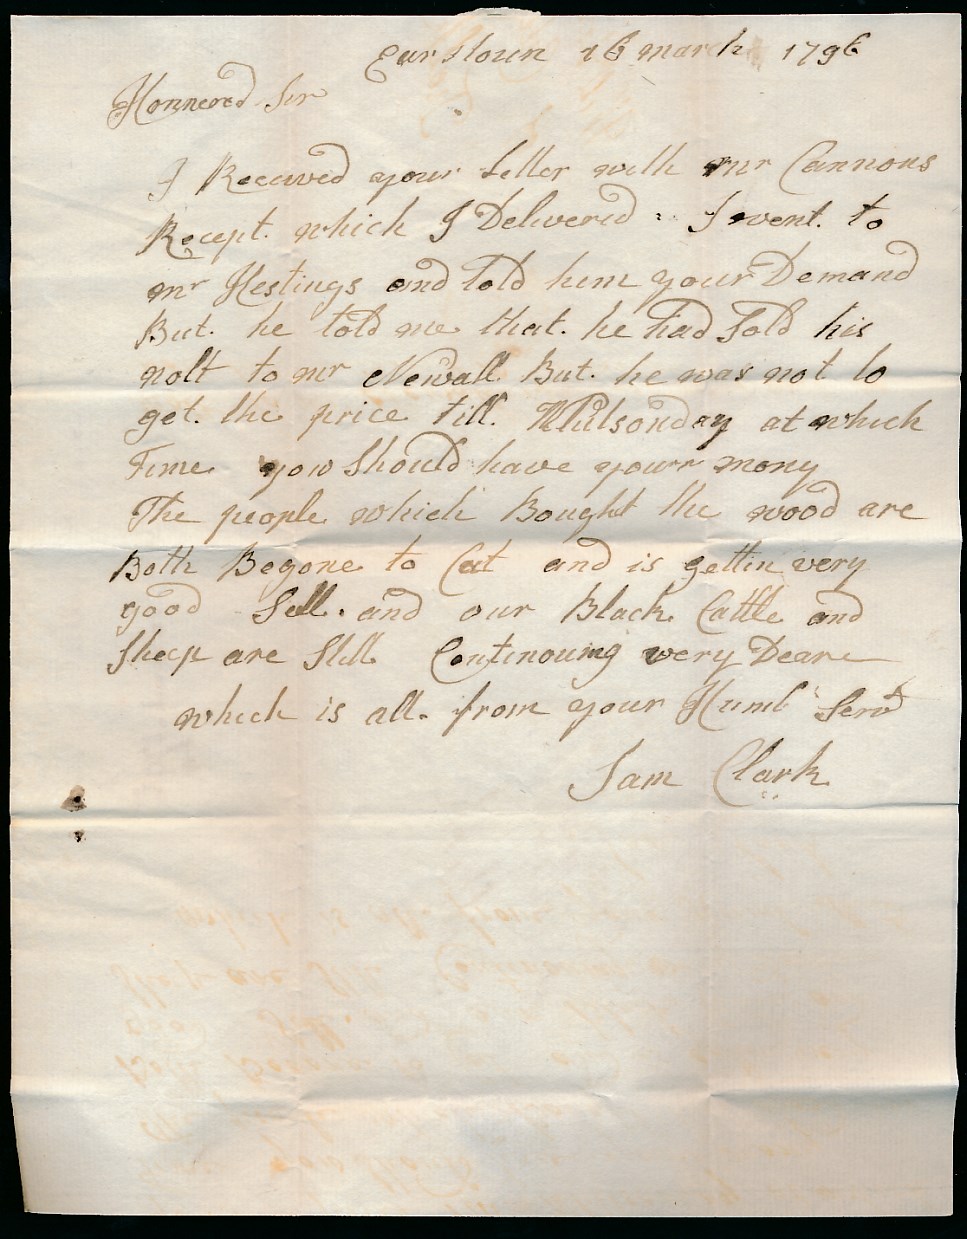 Earstoun 16 march 1796
Honnered Sir
I Receved your Letter with mr Cannons
Recept. which I Delivered. I went. to
mr Hestings and told him your Demand
But. he told me that. he had Sold his
nolt to mr Newall But. he was not to
get. the price till. Whitsonday at which
Time you Should have yourr mony
The people which Bought the wood are
Both Begone to Cut and is gettin very
good Sell. and our Black Cattle and
Sheep are Still Continouing very Deare
which is all. from your Humb Servt
Sam Clark